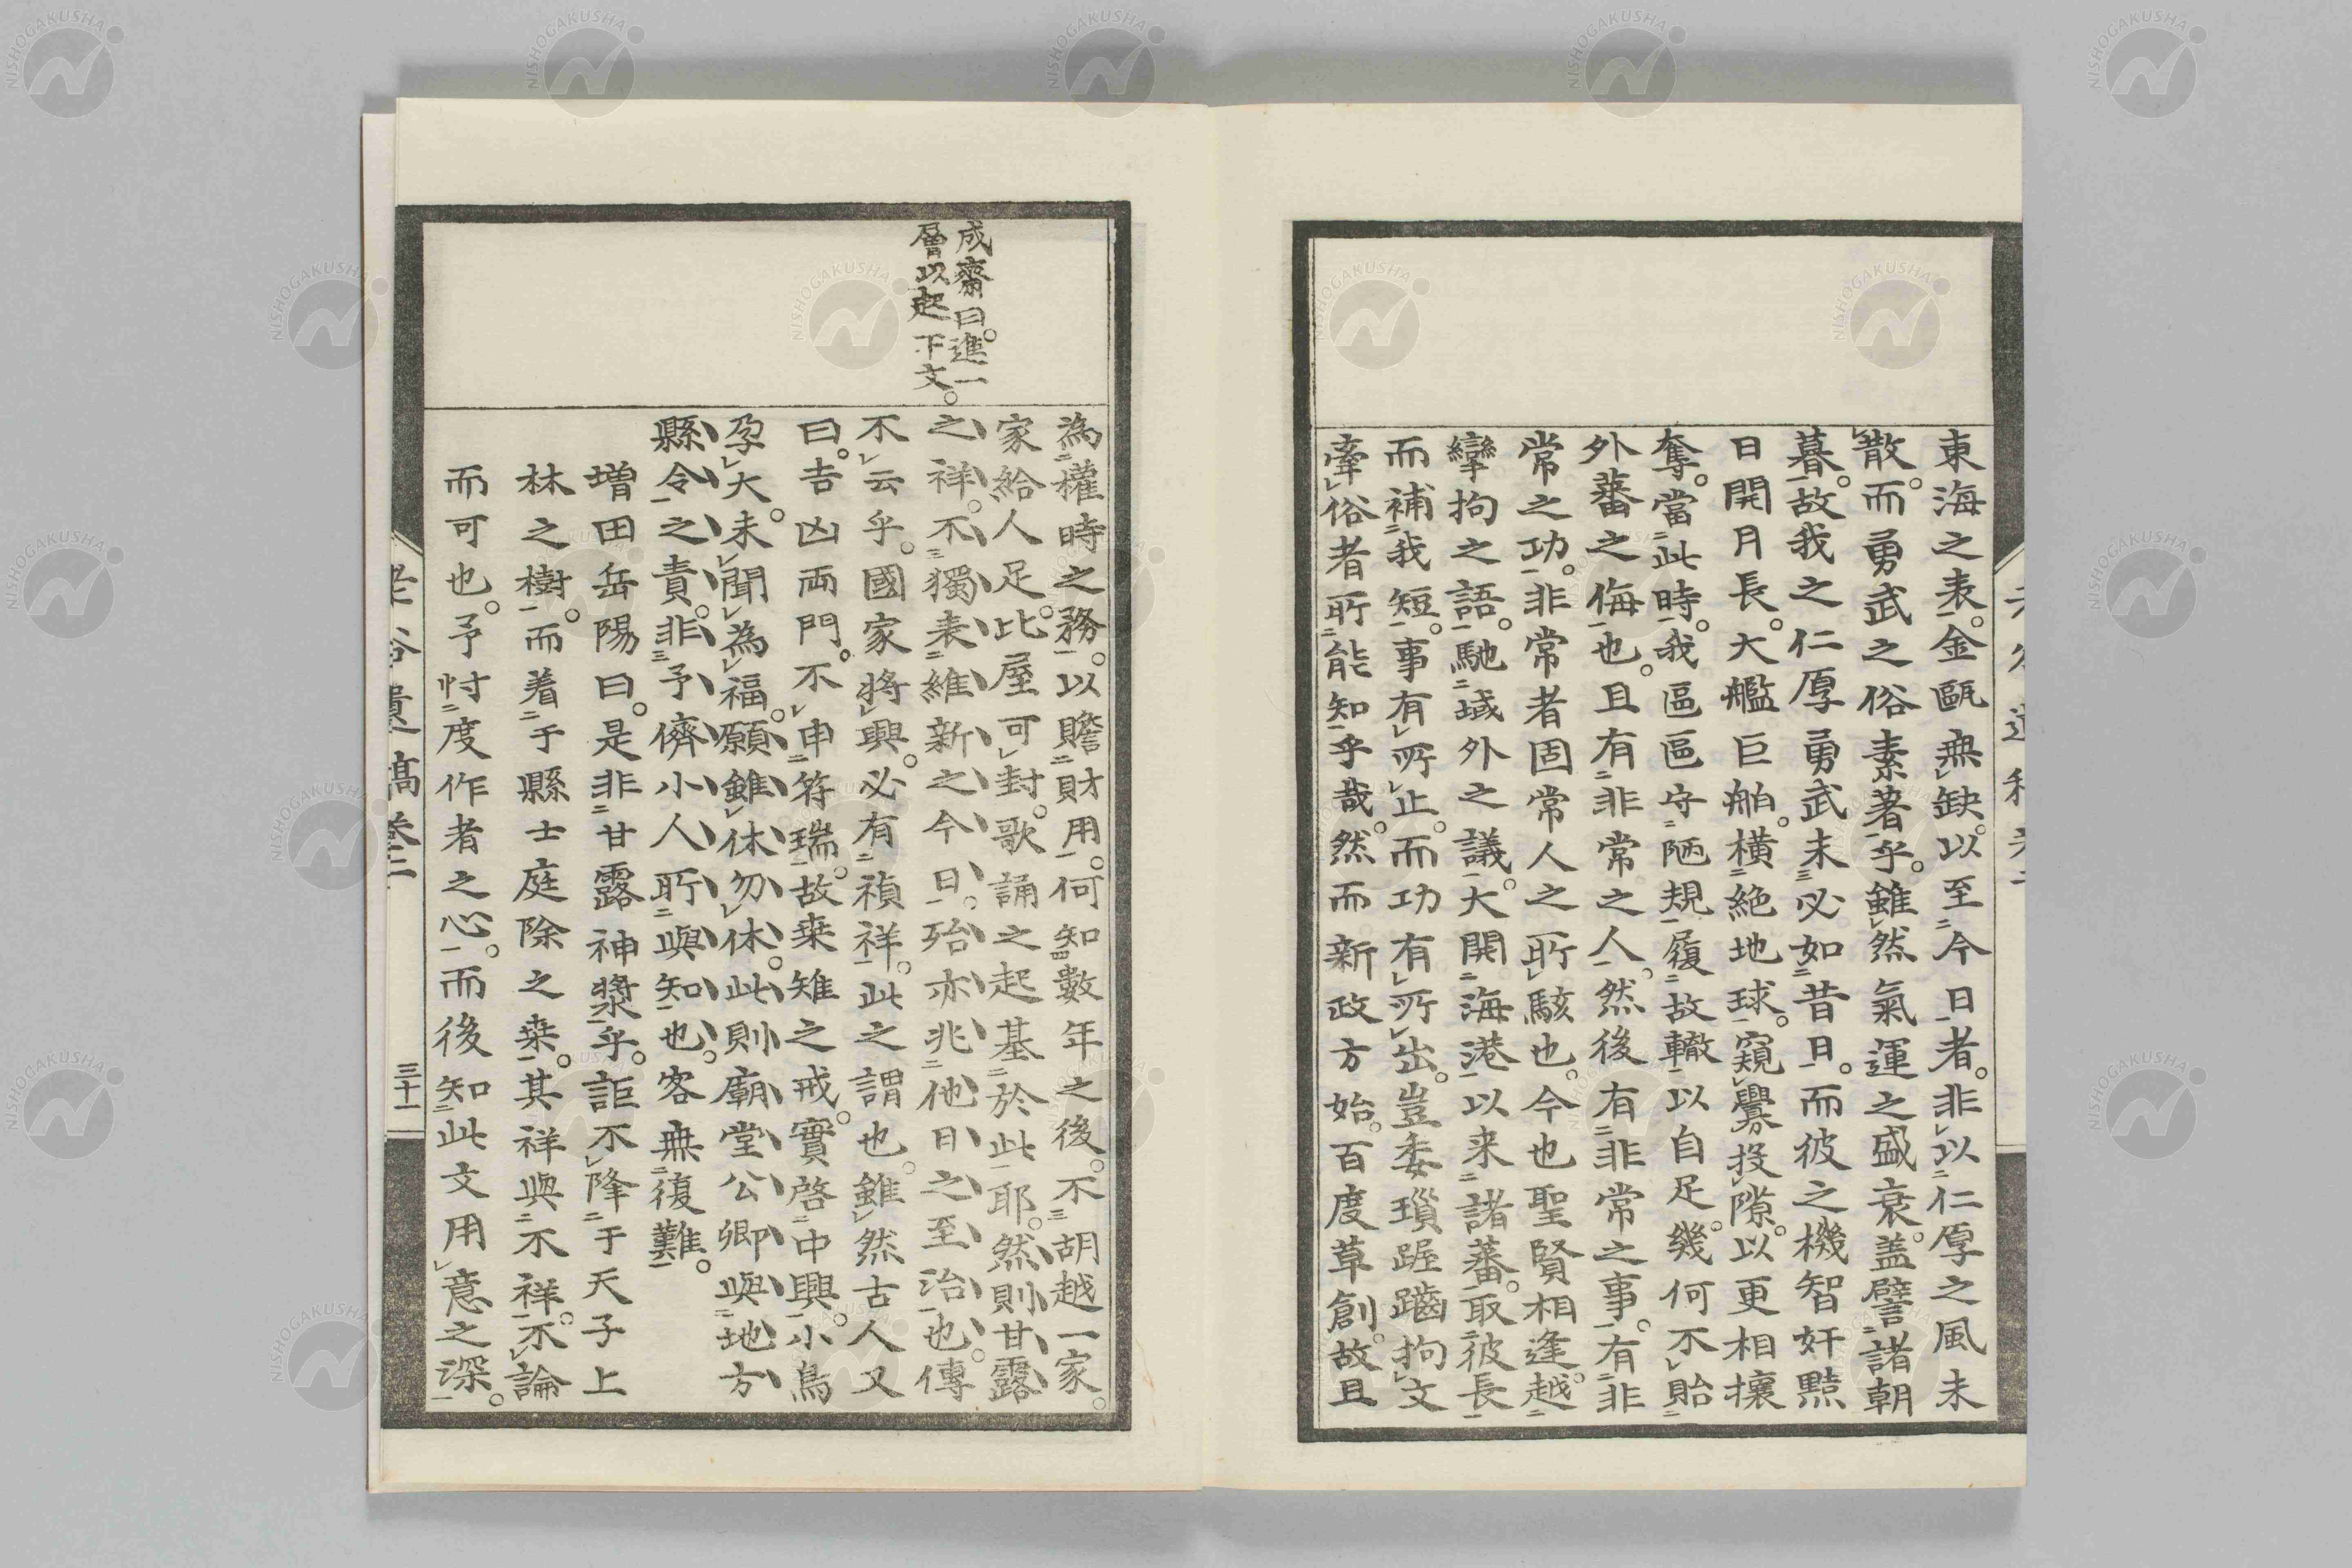 東海之表。金甌無缺。以至今日者。非以仁厚之風未
散。而勇武之俗素著乎。雖然氣運之盛衰。盖譬諸朝
暮。故我之仁厚勇武未必如昔日。而彼之機智奸黠
日開月長。大艦巨舶。横絶地球。窺釁投隙。以更相攘
奪。當此時。我區區守陋規。履故轍。以自足。幾何不貽
外蕃之侮也。且有非常之人。然後有非常之事。有非
常之功。非常者固常人之所駭也。今也聖賢相逢。越
攣拘之語。馳域外之議。大開海港。以来諸蕃。取彼長
而補我短。事有所止。而功有所出。豈委瑣踞齷拘文
牽俗者所能知乎哉。然而新政方始。百度草創。故且
成齋曰。進一
層以起下文。
為權時之務。以贍財用。何知數年之後。不胡越一家。
家給人足。比屋可封。歌誦之起基於此耶。然則甘露
之祥。不獨表維新之今日。殆亦兆他日之至治也。傳
不云乎。國家將興。必有禎祥。此之謂也。雖然古人又
曰。吉凶両門。不申符瑞。故桒雉之戒。實啓中興。小鳥
孕大。未聞為福。願雖休勿休。此則廟堂公卿與地方
縣令之責。非予儕小人所與知也。客無復難。
増田岳陽曰。是非甘露神漿乎。詎不降于天子上
林之樹。而着于縣士庭除之桒。其祥與不祥。不論
而可也。予忖度作者之心。而後知此文用意之深。
遺稿卷二
三十一